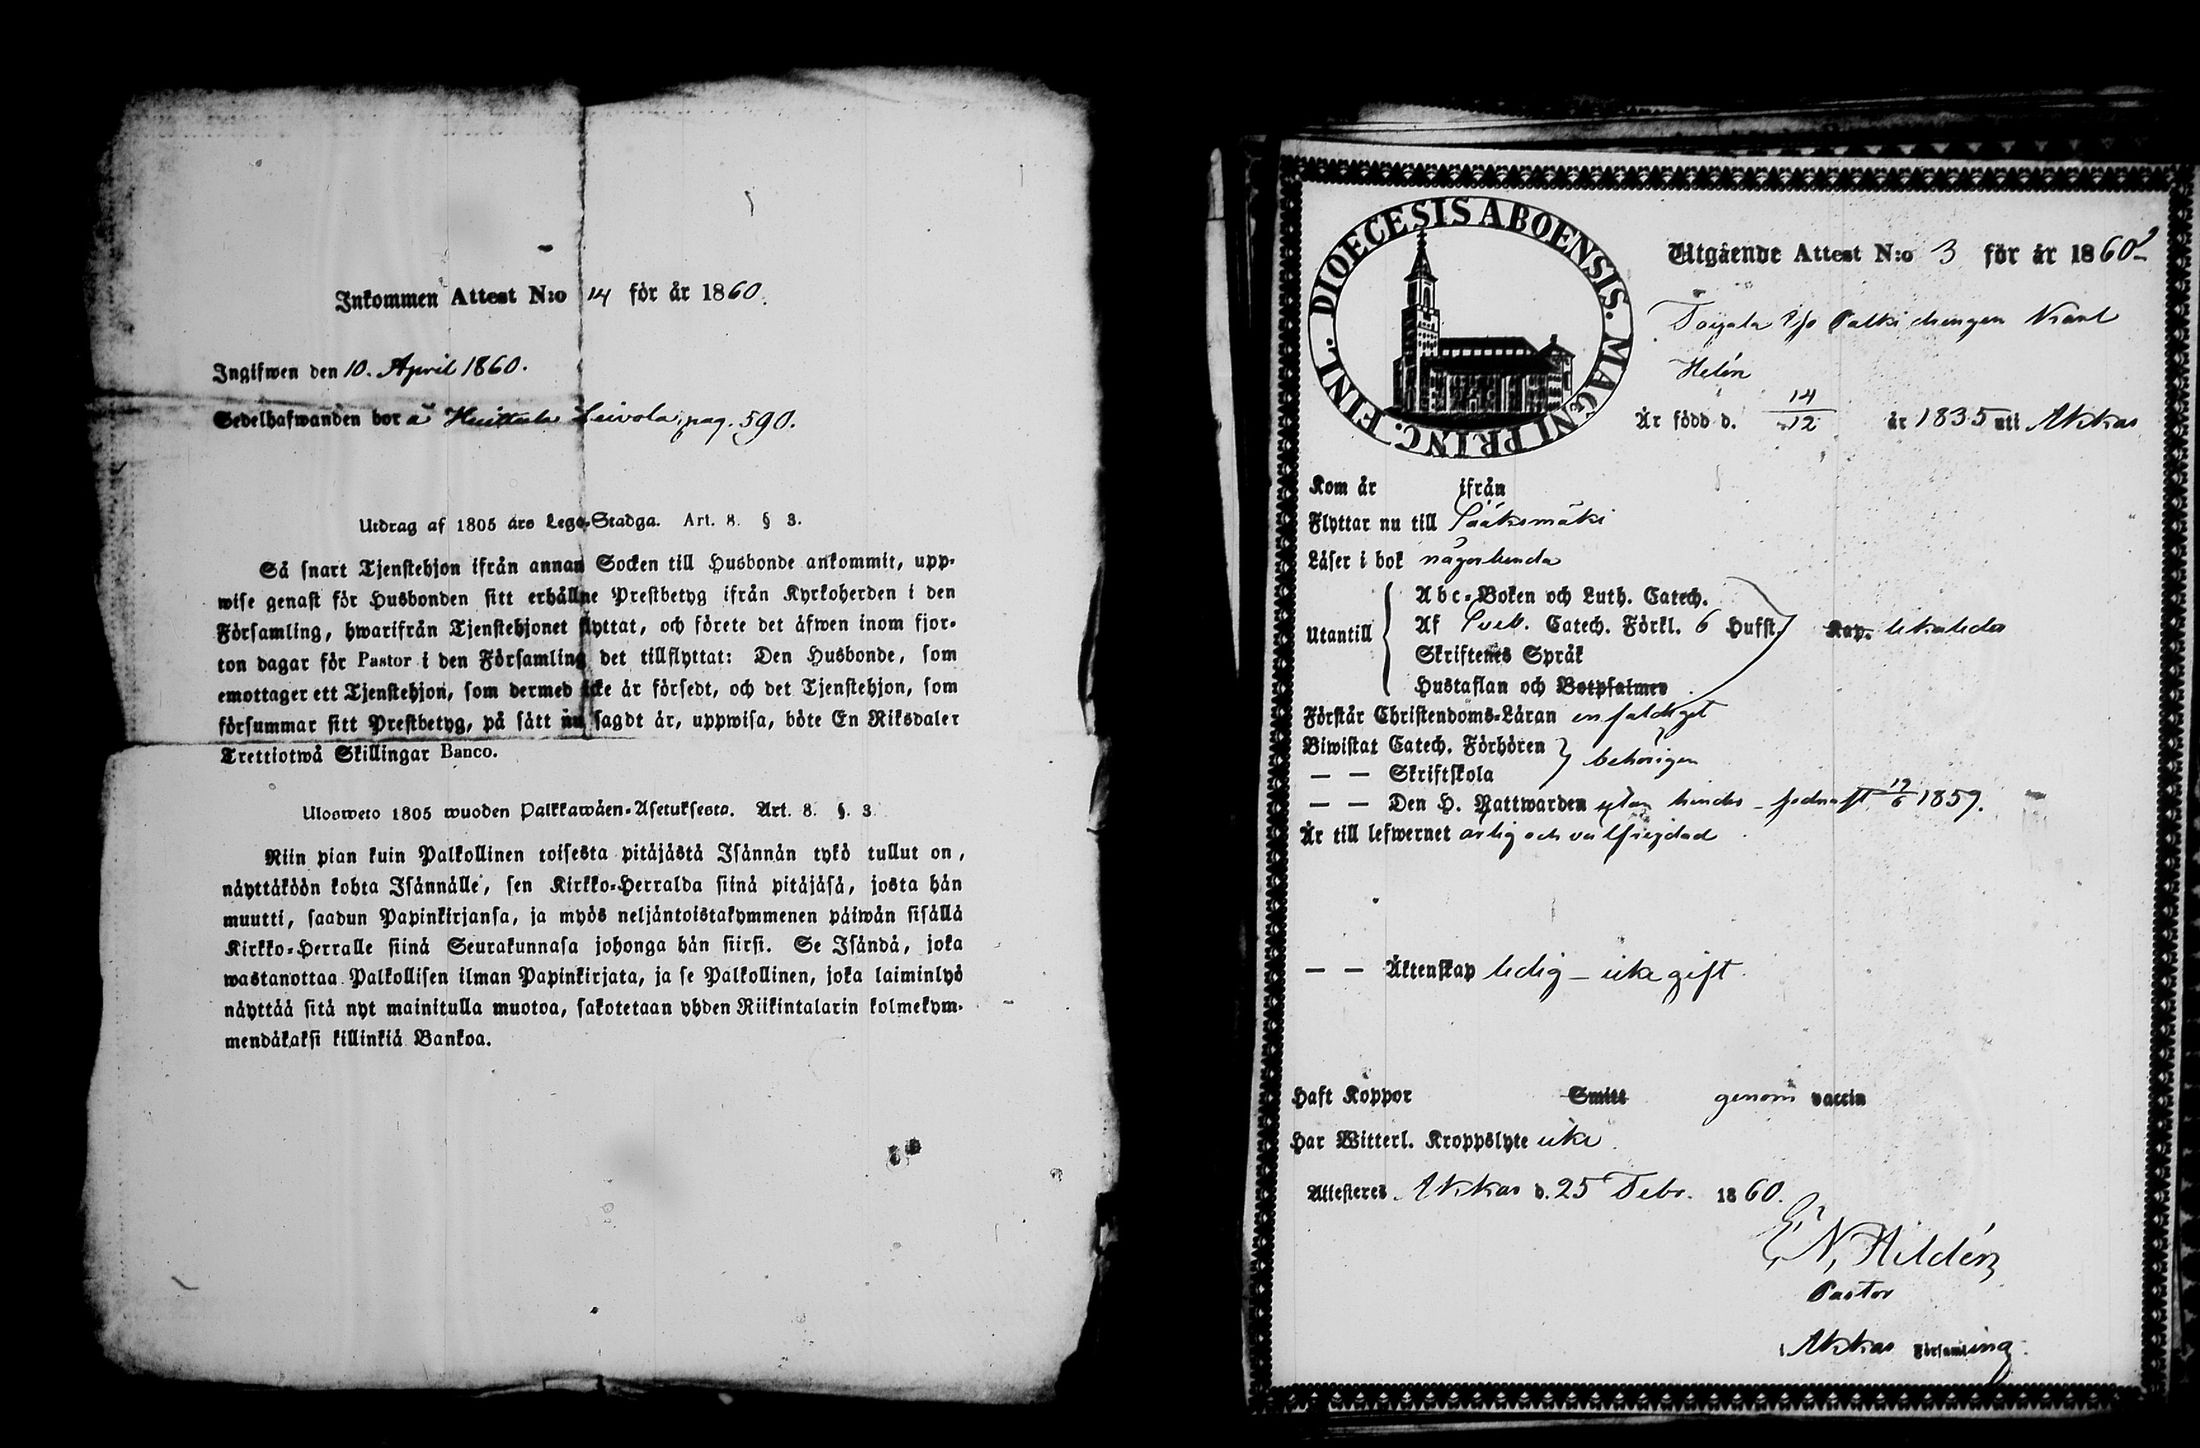 Inkommen Attest N:o 14 för år 1860.
Ingifwen den 10. April 1860.
Sedelhafwanden bor å Huittula Leivola, pag. 590.
Utdrag af 1805 års Lego-Stadga. Art. 8. § 3.
Så snart Tjenstehjon ifrån annan Socken till Husbonde ankommit, upp-
wise genast för Husbonden sitt erhållne Prestbetyg ifrån Kyrkoherden i den
Församling, hwarifrån Tjenstehjonet flyttat, och förete det äfwen inom fjor-
ton dagar för Pastor i den Församling det tillflyttat: Den Husbonde, som
emottager ett Tjenstehjon, som dermed icke är försedt, och det Tjenstehjon, som
försummar sitt Prestbetyg, på sätt nu sagdt är, uppwisa, böte En Riksdaler
Trettiotwå Skillingar Banco.
Ulosweto 1805 wuoden Palkkawäen-Asetuksesta. Art. 8. §. 3
Niin pian kuin Palkollinen toisesta pitäjästä Isännän tykö tullut on,
näyttäköön kohta Isännälle, sen Kirkko-Herralda siinä pitäjäsä, josta hän
muutti, saadun Papinkirjansa, ja myös neljäntoistakymmenen päiwän sisällä
Kirkko-Herralle siinä Seurakunnasa johonga hän siirsi. Se Isändä, joka
wastanottaa Palkollisen ilman Papinkirjata, ja se Palkollinen, joka laiminlyö
näyttää sitä nyt mainitulla muotoa, sakotetaan yhden Riikintalarin kolmekym-
mendäkaksi killinkiä Bankoa.
DIOECESIS ABOENSIS. MAGNI PRINC. FINL.
Utgående Attest N:o 3 för år 1860
Toijala Palki drengen Karl
Helén
Är född d. 14/12 år 1835 uti Akkas
Kom år ifrån
Flyttar nu till Sääksmäki
Läser i bok någorlunda
Utantill
Abc-Boken och Luth. Catech.
Af Sveb. Catech. Förkl. 6 Hufst. Kap. likaledes
Skriftenes Språk
Hustaflan och Botpsalmer
Förstår Christendoms-Läran enfaldigt
Biwistat Catech. Förhören
— — Skriftskola behörigen
— — Den H. Nattwarden utan hinder sednast 19/6 1859.
Är till lefwernet ärlig och välfrejdad
— — Äktenskap ledig – icke gift.
Haft Koppor Smitt genom vaccin
Har Witterl. Kroppslyte icke.
Attesteres Akkas d. 25 Febr. 1860.
E. N. Hildén
Pastor
i Akkas Församling.